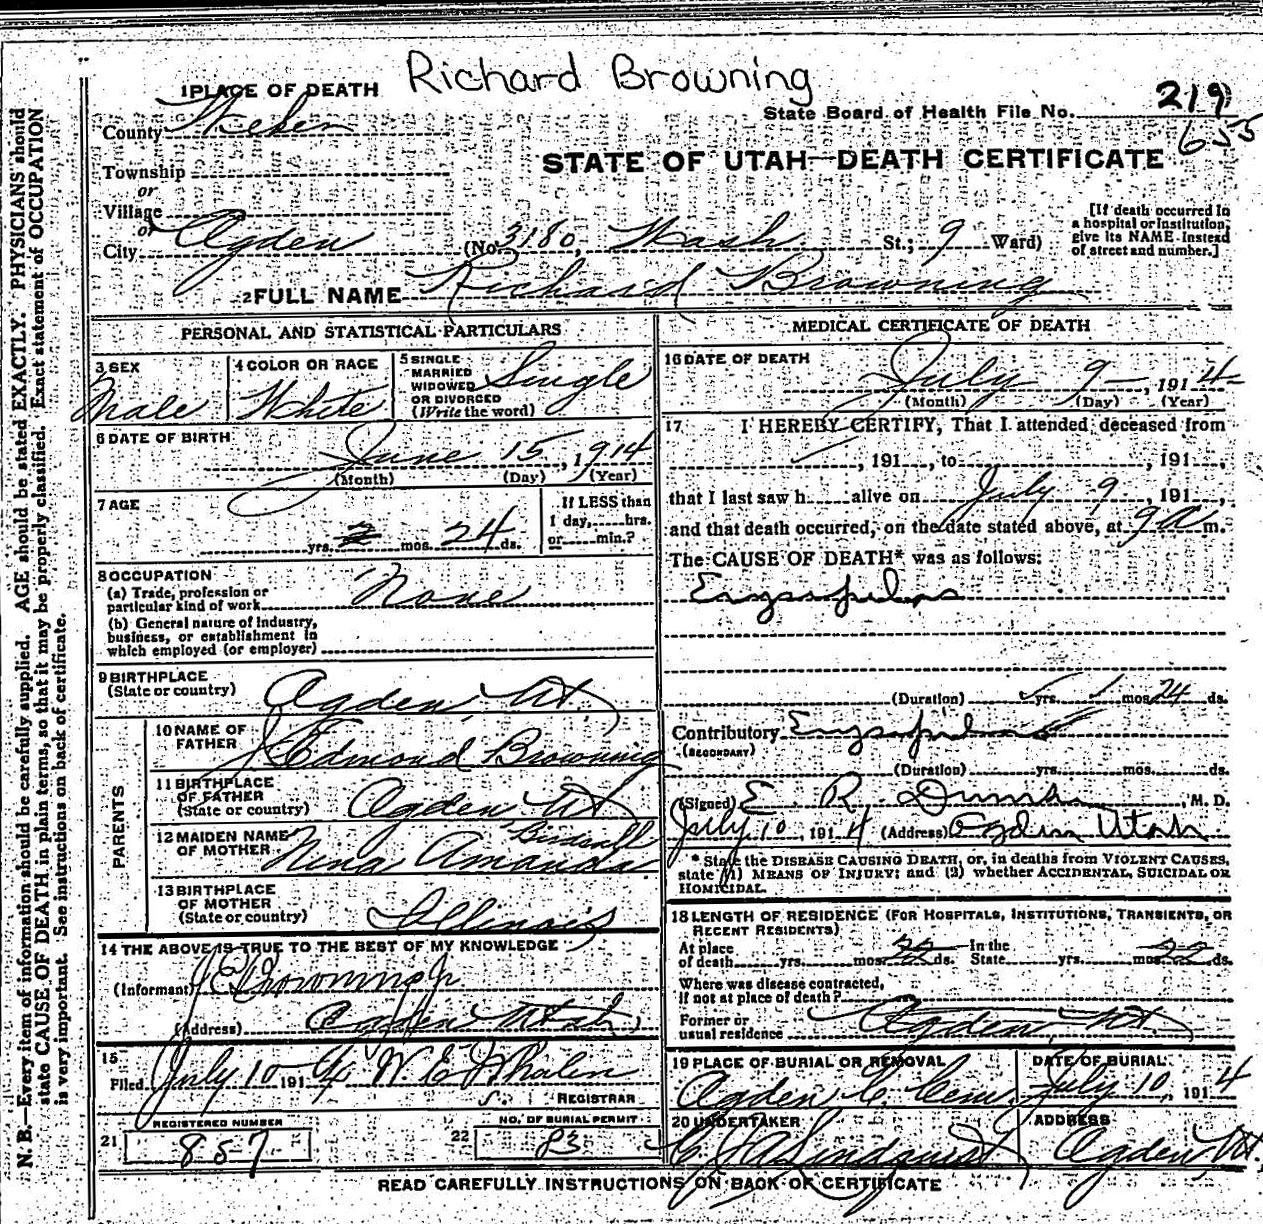 Richard Browning
1 PLACE OF DEATH
State Board of Health File No. 219
655
County Weber
STATE OF UTAH—DEATH CERTIFICATE
Township
or
Village
or
City Ogden (No. 3180, Wash St.; 9 Ward)
[If death occurred in
a hospital or institution,
give its NAME instead
of street and number.]
2 FULL NAME Richard Browning
PERSONAL AND STATISTICAL PARTICULARS
3 SEX
Male
4 COLOR OR RACE
White
5 SINGLE
MARRIED
WIDOWED
OR DIVORCED
(Write the word)
Single
6 DATE OF BIRTH
June 15, 1914
(Month) (Day) (Year)
7 AGE
yrs. mos. 24 ds.
If LESS than
1 day, hrs.
or min.?
8 OCCUPATION
(a) Trade, profession or
particular kind of work None
(b) General nature of industry,
business, or establishment in
which employed (or employer)
9 BIRTHPLACE
(State or country) Ogden Ut
PARENTS
10 NAME OF
FATHER J Edmond Browning
11 BIRTHPLACE
OF FATHER
(State or country) Ogden Ut
12 MAIDEN NAME
OF MOTHER Nina Amanda
13 BIRTHPLACE
OF MOTHER
(State or country) Illinois
14 THE ABOVE IS TRUE TO THE BEST OF MY KNOWLEDGE
(Informant) J E Browning Jr
(Address) Ogden Utah
15
Filed July 10 1914 W. E. Whalen
REGISTRAR
21 REGISTERED NUMBER
857
22 NO. OF BURIAL PERMIT
83
MEDICAL CERTIFICATE OF DEATH
16 DATE OF DEATH
July 9, 1914
(Month) (Day) (Year)
17 I HEREBY CERTIFY, That I attended deceased from
, 191 , to , 191 ,
that I last saw h alive on July 9, 191 ,
and that death occurred, on the date stated above, at 9 a m.
The CAUSE OF DEATH* was as follows:
Erysipelas
(Duration) yrs. mos. 24 ds.
Contributory Erysipelas
(SECONDARY)
(Duration) yrs. mos. ds.
(Signed) E. R. , M. D.
July 10, 1914 (Address) Ogden Utah
* State the DISEASE CAUSING DEATH, or, in deaths from VIOLENT CAUSES,
state (1) MEANS OF INJURY; and (2) whether ACCIDENTAL, SUICIDAL OR
HOMICIDAL.
18 LENGTH OF RESIDENCE (FOR HOSPITALS, INSTITUTIONS, TRANSIENTS, OR
RECENT RESIDENTS)
At place In the
of death yrs. mos. ds. State yrs. mos. ds.
Where was disease contracted,
if not at place of death?
Former or
usual residence Ogden Ut.
19 PLACE OF BURIAL OR REMOVAL
Ogden C. Cem.
DATE OF BURIAL
July 10, 1914
20 UNDERTAKER
Lindquist
ADDRESS
Ogden Ut.
READ CAREFULLY INSTRUCTIONS ON BACK OF CERTIFICATE
N. B.—Every item of information should be carefully supplied. AGE should be stated EXACTLY. PHYSICIANS should
state CAUSE OF DEATH in plain terms, so that it may be properly classified. Exact statement of OCCUPATION
is very important. See instructions on back of certificate.